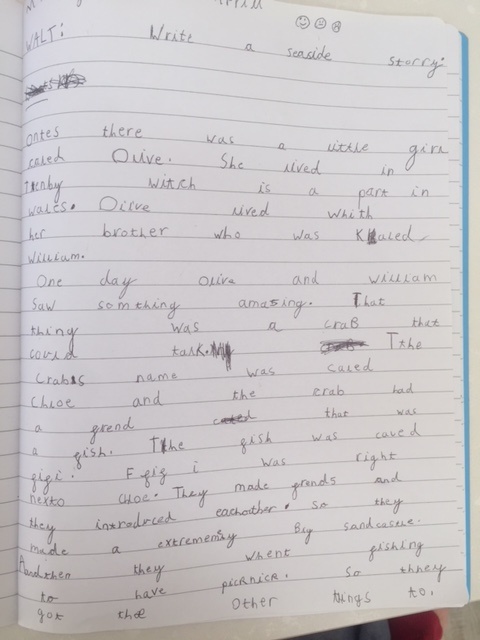 WALT: Write a seaside storry:
ontes there was a little girl
caled Olive. She lived in
Tenby witch is a part in
wales. Olive lived whith
her brother who was Kaled
william.
One day olive and william
saw somthing amazing. That
thing was a craB that
could talk. Tthe
Crabs name was caled
Chloe and the crab had
a frend that was
a fish. Tthe fish was caled
fifi. Ffifi was right
nexto Chloe. They made frends and
they introduced eachother. so they
made a extrememly By sandcasle.
Andthen they whent fishing
to have picknick. so thney
got the other things to.